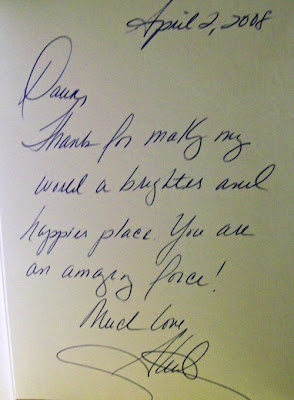 April 2, 2008
Dawn,
Thanks for making my
world a brighter and
happier place. You are
an amazing force!
Much love,